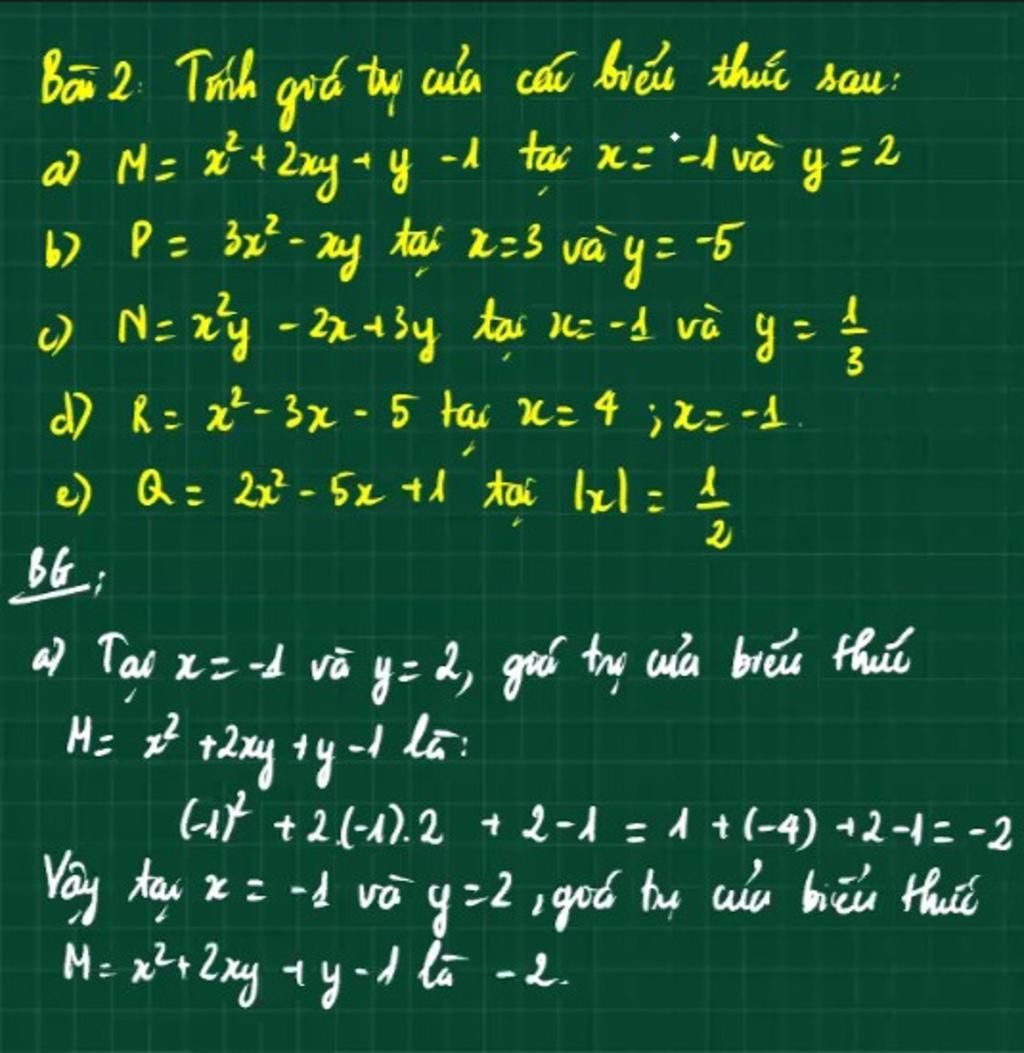 Bài 2: Tính giá trị của các biểu thức sau:
a) M = x² + 2xy + y - 1 tại x = -1 và y = 2
b) P = 3x² - xy tại x = 3 và y = -5
c) N = x²y - 2x + 3y tại x = -1 và y = 1/3
d) R = x² - 3x - 5 tại x = 4 ; x = -1.
e) Q = 2x² - 5x + 1 tại |x| = 1/2
BG:
a) Tại x = -1 và y = 2, giá trị của biểu thức
M = x² + 2xy + y - 1 là:
(-1)² + 2.(-1).2 + 2 - 1 = 1 + (-4) + 2 - 1 = -2
Vậy tại x = -1 và y = 2, giá trị của biểu thức
M = x² + 2xy + y - 1 là - 2.